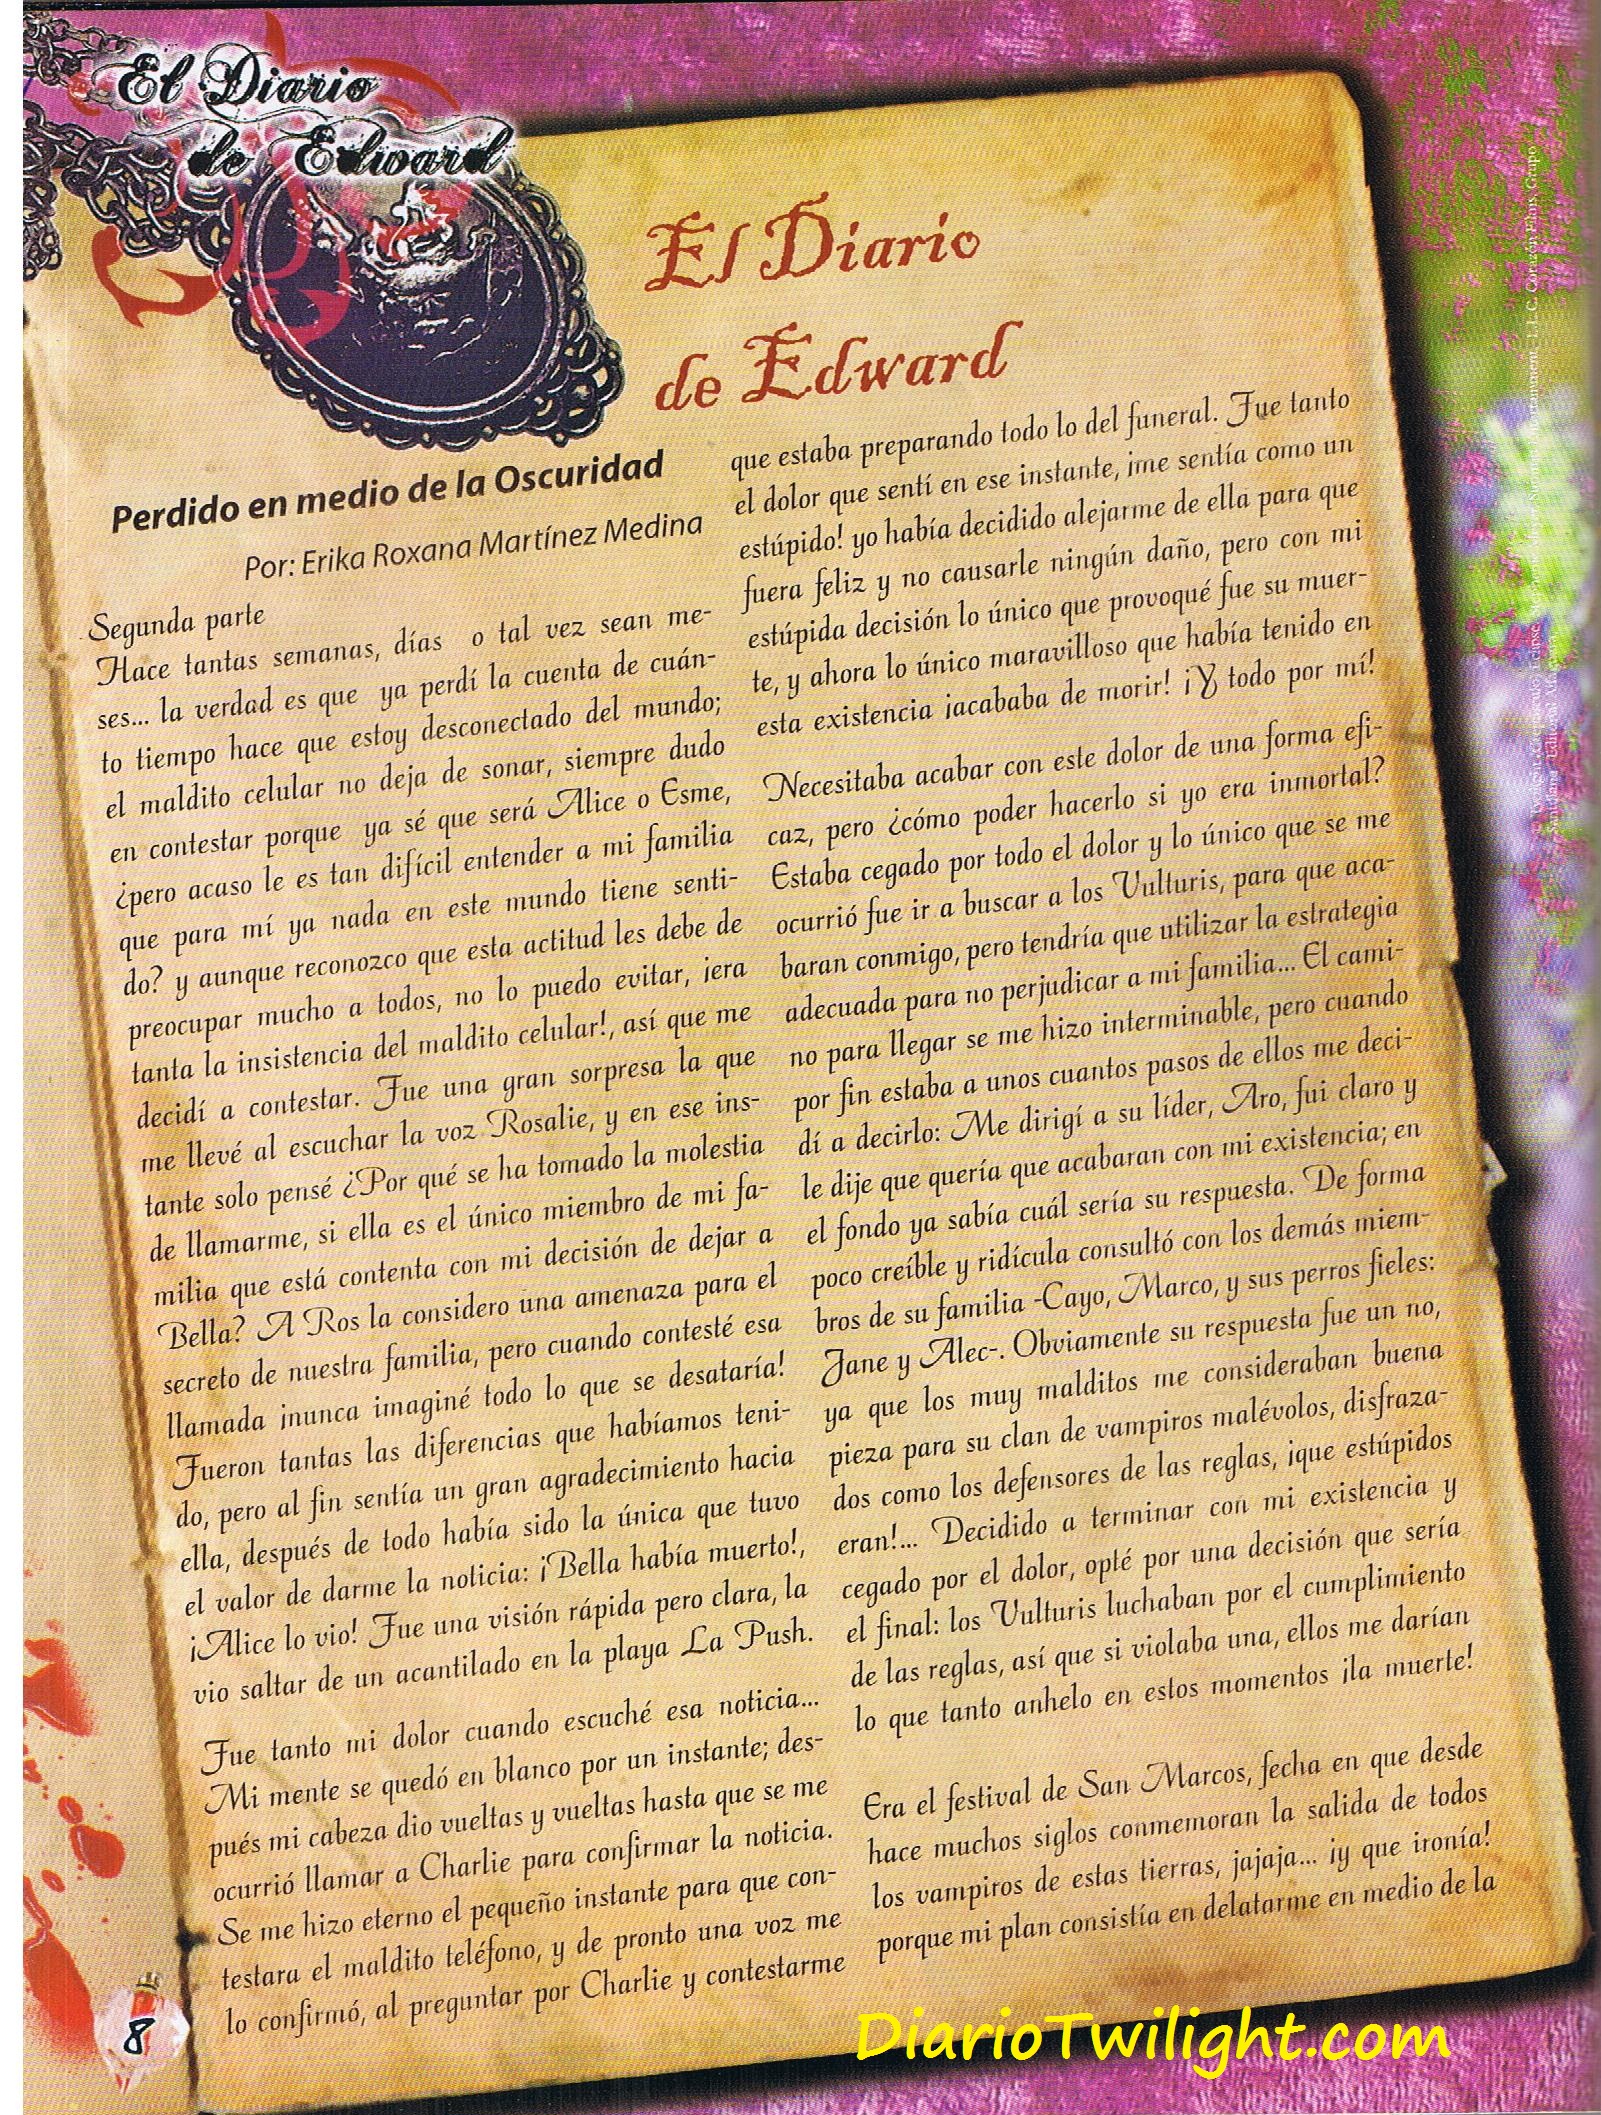 El Diario
de Edward
El Diario
de Edward
Perdido en medio de la Oscuridad
Por: Erika Roxana Martínez Medina
Segunda parte
Hace tantas semanas, días o tal vez sean me-
ses... la verdad es que ya perdí la cuenta de cuán-
to tiempo hace que estoy desconectado del mundo;
el maldito celular no deja de sonar, siempre dudo
en contestar porque ya sé que será Alice o Esme,
¿pero acaso le es tan difícil entender a mi familia
que para mí ya nada en este mundo tiene senti-
do? y aunque reconozco que esta actitud les debe de
preocupar mucho a todos, no lo puedo evitar, ¡era
tanta la insistencia del maldito celular!, así que me
decidí a contestar. Fue una gran sorpresa la que
me llevé al escuchar la voz Rosalie, y en ese ins-
tante solo pensé ¿Por qué se ha tomado la molestia
de llamarme, si ella es el único miembro de mi fa-
milia que está contenta con mi decisión de dejar a
Bella? A Ros la considero una amenaza para el
secreto de nuestra familia, pero cuando contesté esa
llamada ¡nunca imaginé todo lo que se desataría!
Fueron tantas las diferencias que habíamos teni-
do, pero al fin sentía un gran agradecimiento hacia
ella, después de todo había sido la única que tuvo
el valor de darme la noticia: ¡Bella había muerto!,
¡Alice lo vio! Fue una visión rápida pero clara, la
vio saltar de un acantilado en la playa La Push.
Fue tanto mi dolor cuando escuché esa noticia...
Mi mente se quedó en blanco por un instante; des-
pués mi cabeza dio vueltas y vueltas hasta que se me
ocurrió llamar a Charlie para confirmar la noticia.
Se me hizo eterno el pequeño instante para que con-
testara el maldito teléfono, y de pronto una voz me
lo confirmó, al preguntar por Charlie y contestarme
que estaba preparando todo lo del funeral. Fue tanto
el dolor que sentí en ese instante, ¡me sentía como un
estúpido! yo había decidido alejarme de ella para que
fuera feliz y no causarle ningún daño, pero con mi
estúpida decisión lo único que provoqué fue su muer-
te, y ahora lo único maravilloso que había tenido en
esta existencia ¡acababa de morir! ¡Y todo por mí!
Necesitaba acabar con este dolor de una forma efi-
caz, pero ¿cómo poder hacerlo si yo era inmortal?
Estaba cegado por todo el dolor y lo único que se me
ocurrió fue ir a buscar a los Vulturis, para que aca-
baran conmigo, pero tendría que utilizar la estrategia
adecuada para no perjudicar a mi familia... El cami-
no para llegar se me hizo interminable, pero cuando
por fin estaba a unos cuantos pasos de ellos me deci-
dí a decirlo: Me dirigí a su líder, Aro, fui claro y
le dije que quería que acabaran con mi existencia; en
el fondo ya sabía cuál sería su respuesta. De forma
poco creíble y ridícula consultó con los demás miem-
bros de su familia -Cayo, Marco, y sus perros fieles:
Jane y Alec-. Obviamente su respuesta fue un no,
ya que los muy malditos me consideraban buena
pieza para su clan de vampiros malévolos, disfraza-
dos como los defensores de las reglas, ¡que estúpidos
eran!... Decidido a terminar con mi existencia y
cegado por el dolor, opté por una decisión que sería
el final: los Vulturis luchaban por el cumplimiento
de las reglas, así que si violaba una, ellos me darían
lo que tanto anhelo en estos momentos ¡la muerte!
Era el festival de San Marcos, fecha en que desde
hace muchos siglos conmemoran la salida de todos
los vampiros de estas tierras, jajaja... ¡y que ironía!
porque mi plan consistía en delatarme en medio de la
8
DiarioTwilight.com